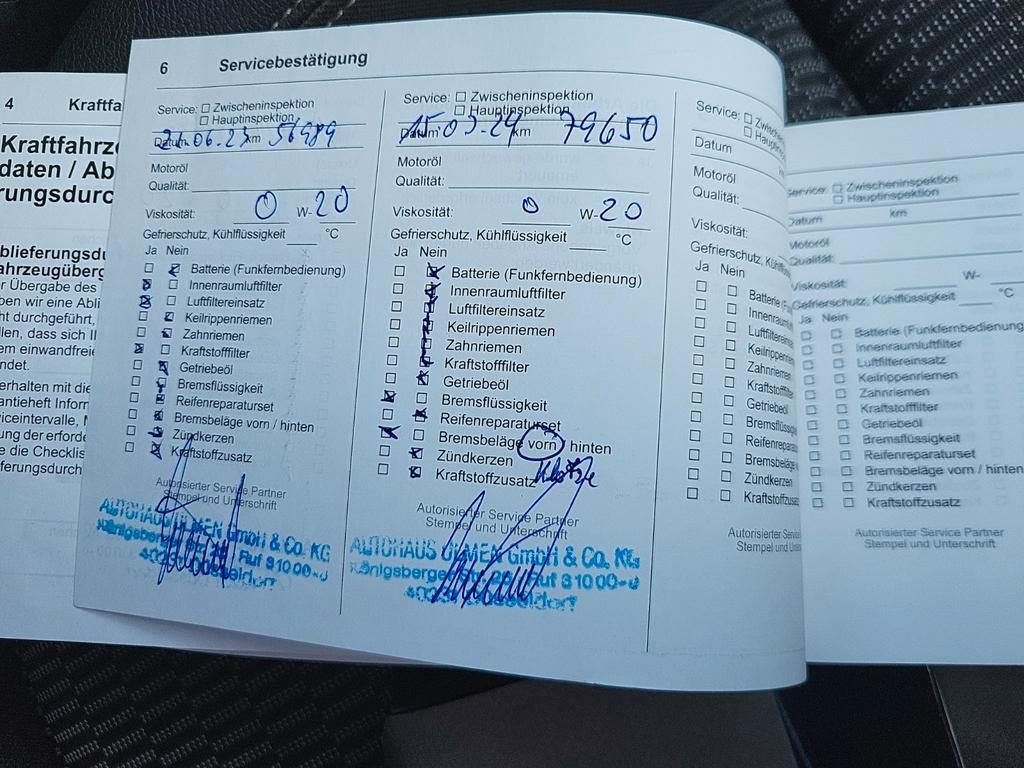 4 Kraftfa
Kraftfahrze
daten / Ab
rungsdurc
blieferungsdu
ahrzeugüberg
r Übergabe des
ben wir eine Abli
ht durchgeführt,
llen, dass sich I
em einwandfreie
ndet.
erhalten mit die
antieheft Inform
viceintervalle,
ung der erforde
e die Checklis
ferungsdurch
6 Servicebestätigung
Service: Zwischeninspektion
Hauptinspektion
Datum 06.23 km 56989
Motoröl
Qualität:
Viskosität: 0 W-20
Gefrierschutz, Kühlflüssigkeit °C
Ja Nein
Batterie (Funkfernbedienung)
Innenraumluftfilter
Luftfiltereinsatz
Keilrippenriemen
Zahnriemen
Kraftstofffilter
Getriebeöl
Bremsflüssigkeit
Reifenreparaturset
Bremsbeläge vorn / hinten
Zündkerzen
Kraftstoffzusatz
Autorisierter Service Partner
Stempel und Unterschrift
AUTOHAUS ULMEN GmbH & Co. KG
Königsberger Ruf 3 10 00-0
Düsseldorf
Service: Zwischeninspektion
Hauptinspektion
Datum 15.03.24 km 79650
Motoröl
Qualität:
Viskosität: 0 W-20
Gefrierschutz, Kühlflüssigkeit °C
Ja Nein
Batterie (Funkfernbedienung)
Innenraumluftfilter
Luftfiltereinsatz
Keilrippenriemen
Zahnriemen
Kraftstofffilter
Getriebeöl
Bremsflüssigkeit
Reifenreparaturset
Bremsbeläge vorn hinten
Zündkerzen Klötze
Kraftstoffzusatz
Autorisierter Service Partner
Stempel und Unterschrift
AUTOHAUS ULMEN GmbH & Co. KG
Königsberger Str. Ruf 3 10 00-0
Düsseldorf
Service: Zwische
Hauptin
Datum
Motoröl
Qualität:
Viskosität:
Gefrierschutz, Kühlfl
Ja Nein
Batterie (F
Innenraum
Luftfilterein
Keilrippenri
Zahnriemen
Kraftstofffil
Getriebeöl
Bremsflüssig
Reifenrepara
Bremsbeläge
Zündkerzen
Kraftstoffzusa
Autorisierter Servi
Stempel und Unte
Service: Zwischeninspektion
Hauptinspektion
Datum km
Motoröl
Qualität:
Viskosität: W-
Gefrierschutz, Kühlflüssigkeit °C
Ja Nein
Batterie (Funkfernbedienung
Innenraumluftfilter
Luftfiltereinsatz
Keilrippenriemen
Zahnriemen
Kraftstofffilter
Getriebeöl
Bremsflüssigkeit
Reifenreparaturset
Bremsbeläge vorn / hinten
Zündkerzen
Kraftstoffzusatz
Autorisierter Service Partner
Stempel und Unterschrift